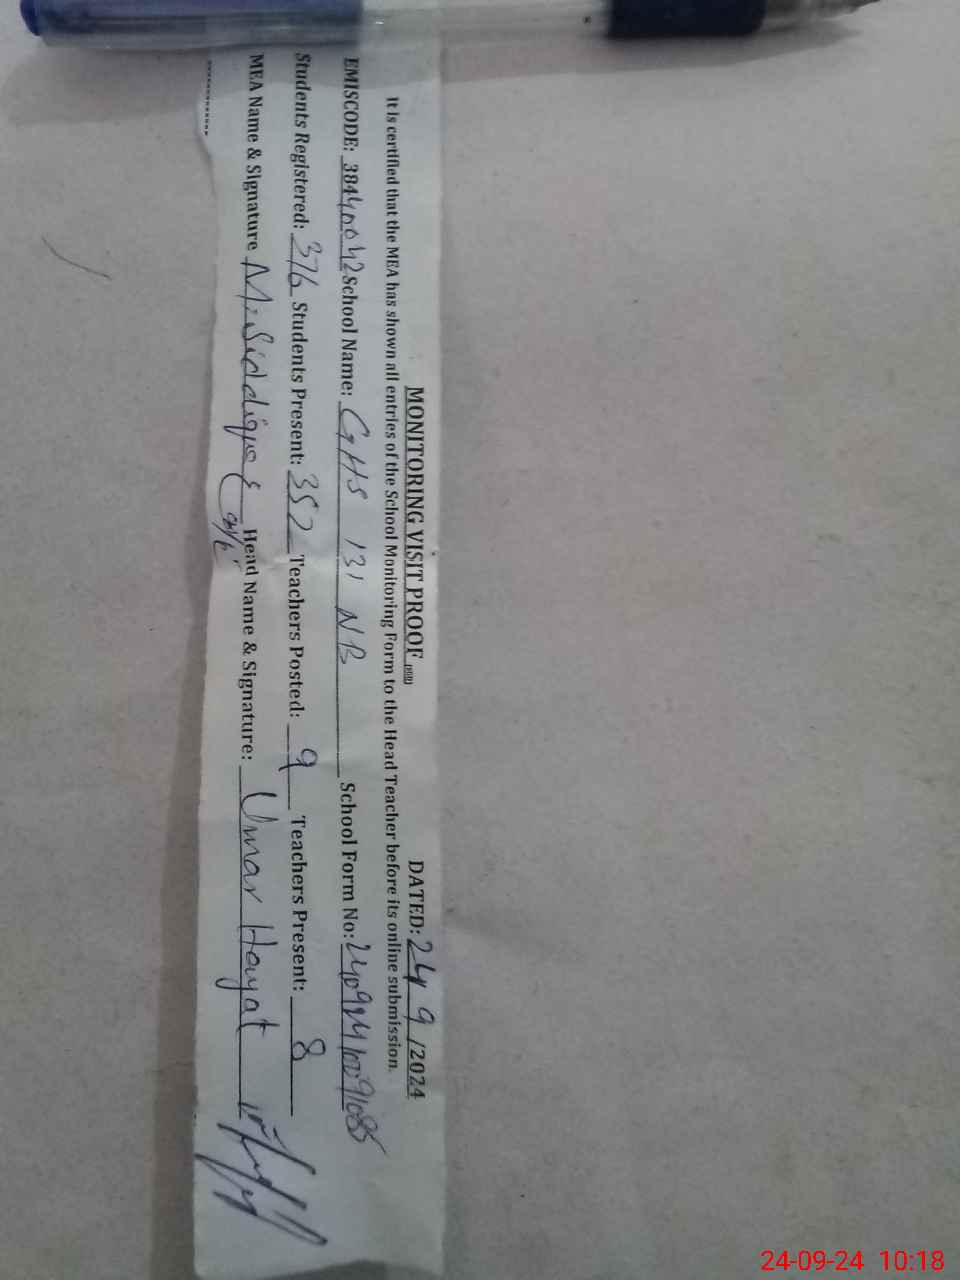 MONITORING VISIT PROOF DATED: 24 9 /2024
It is certified that the MEA has shown all entries of the School Monitoring Form to the Head Teacher before its online submission.
EMISCODE: 38440042 School Name: GHS 131 NB School Form No:
Students Registered: 376 Students Present: 352 Teachers Posted: 9 Teachers Present: 8
MEA Name & Signature M. Siddique Head Name & Signature: Umar Hayat
24-09-24 10:18